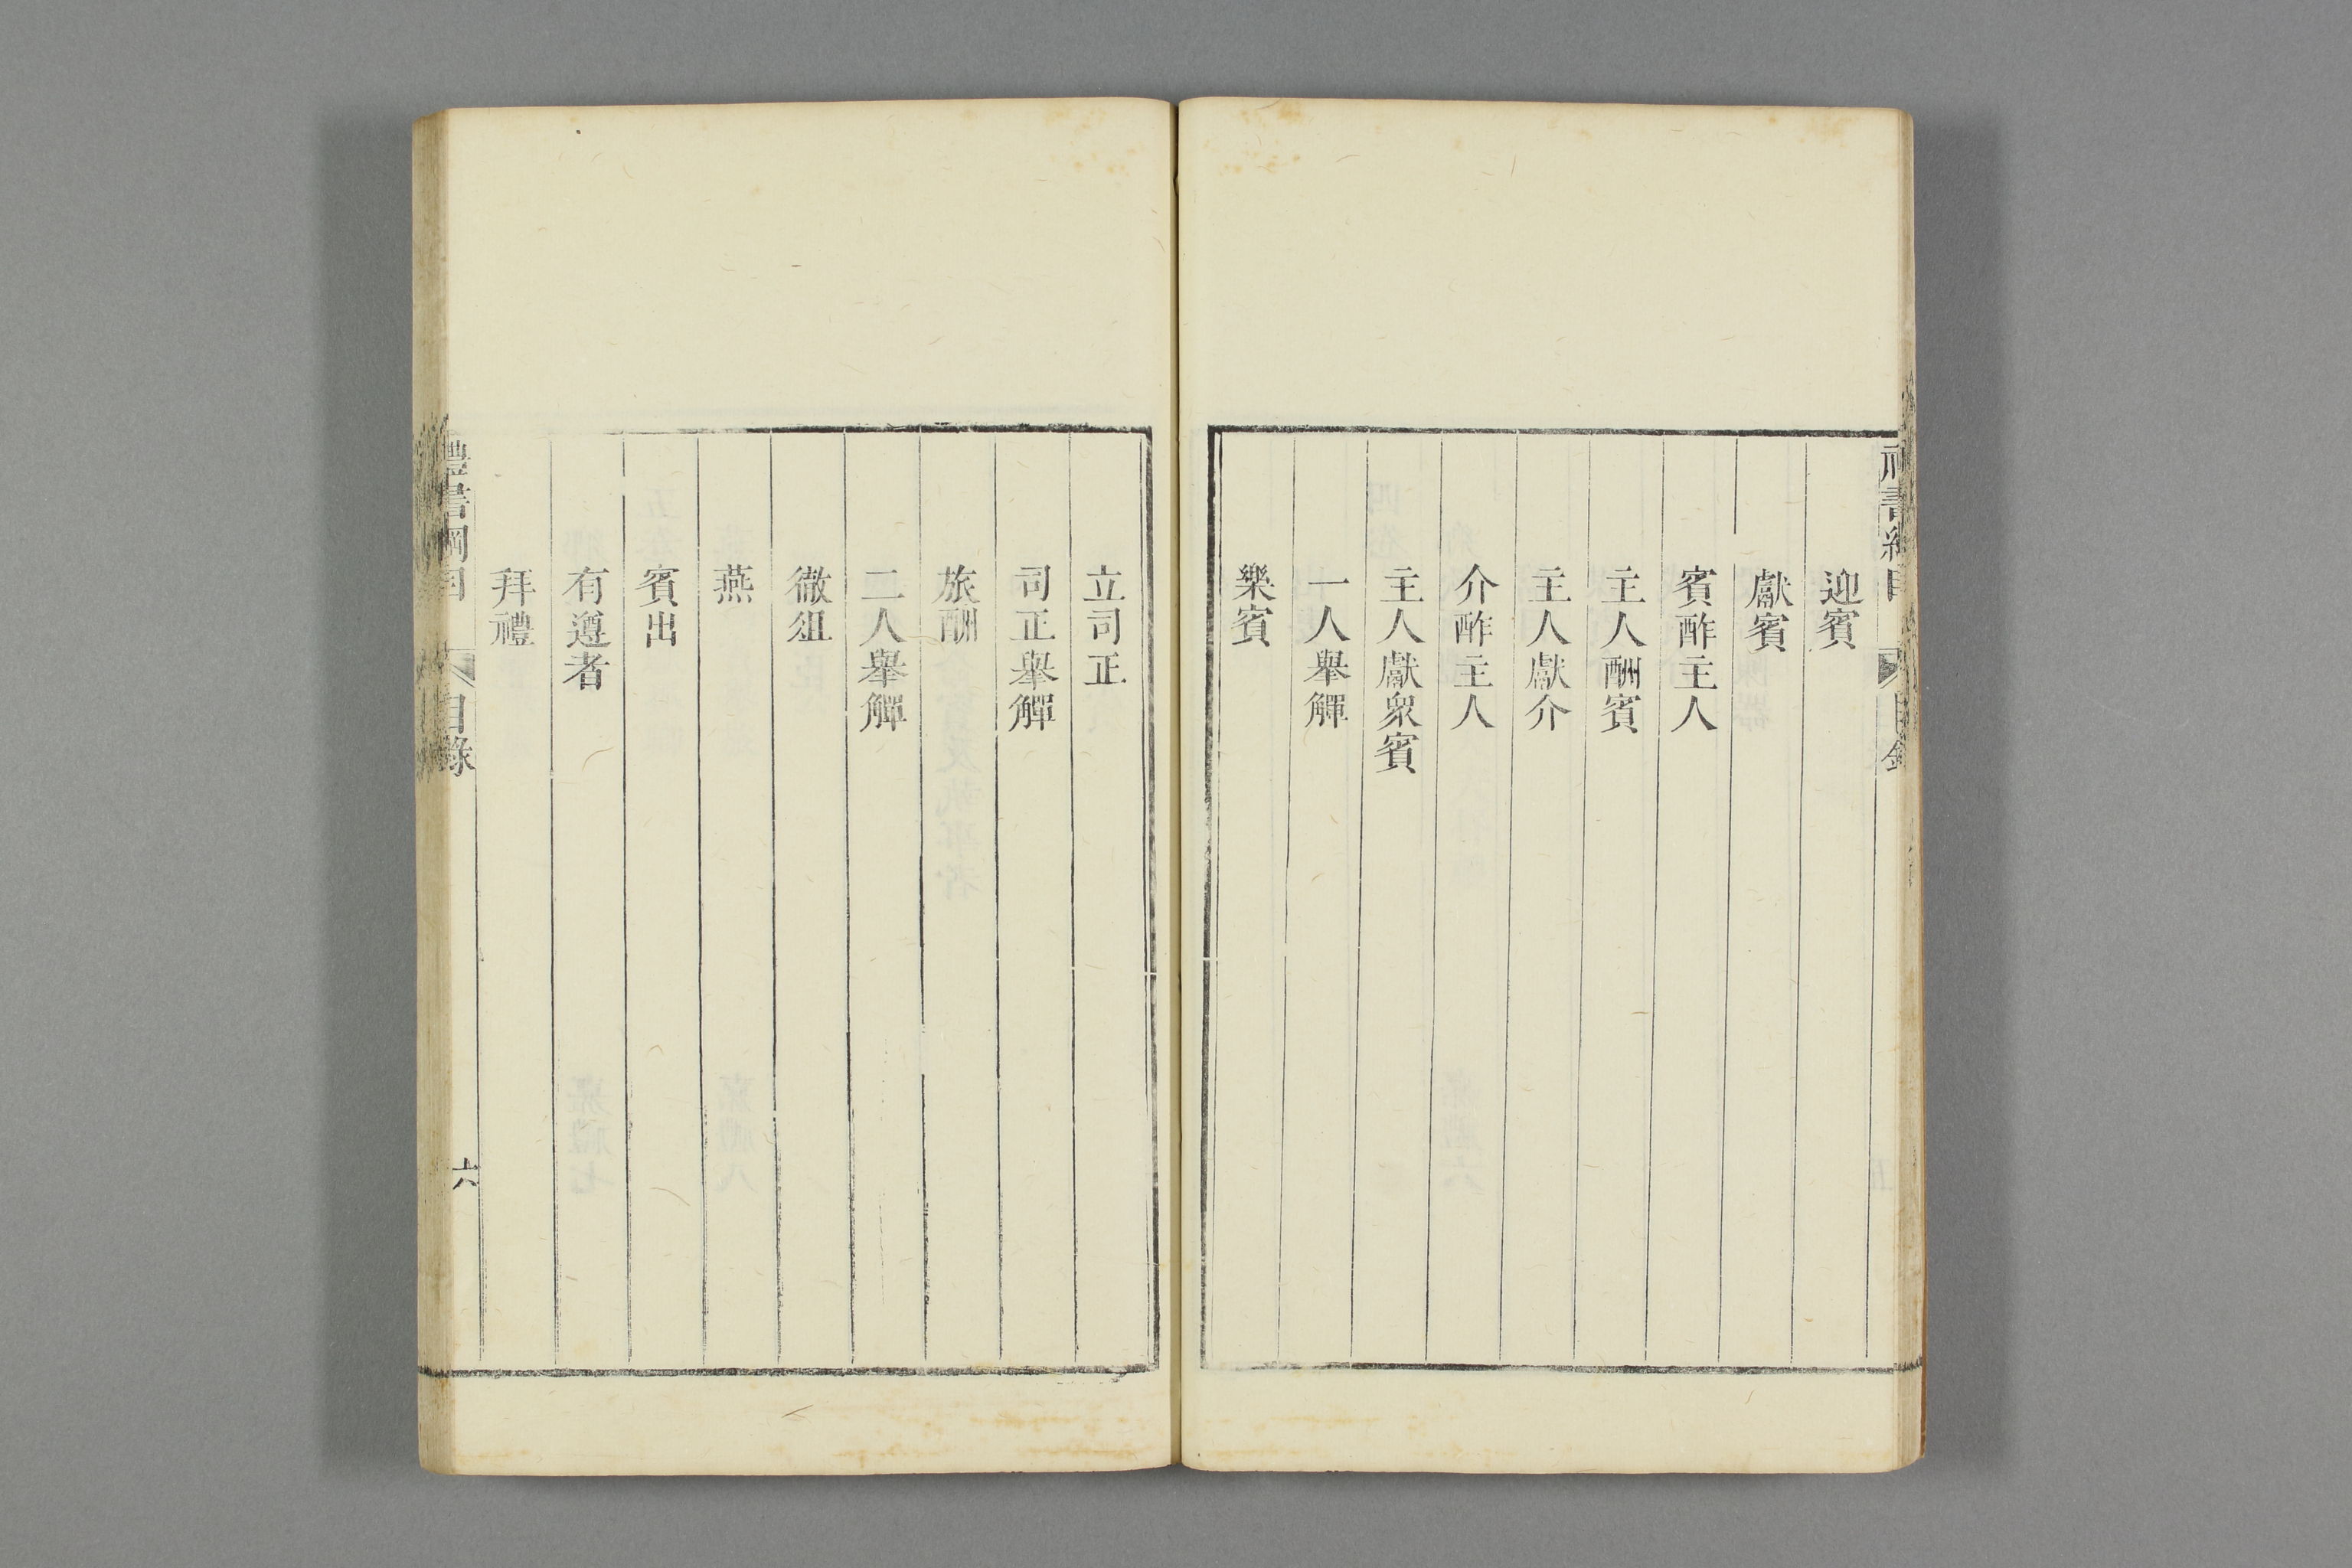 迎賓
獻賓
賓酢主人
主人酬賓
主人獻介
介酢主人
主人獻衆賓
一人舉觶
樂賓
立司正
司正舉觶
旅酬
二人舉觶
徹俎
燕
賓出
有遵者
拜禮
禮書綱目
目錄
六